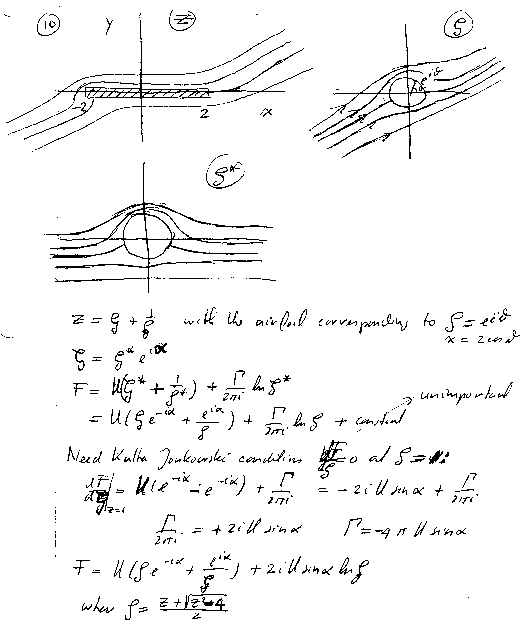 10 y z ζ
e^{iϑ}
-2 2 x
ζ*
z = ζ + 1/ζ with the airfoil corresponding to ζ = e^{iϑ}
x = 2 cos ϑ
ζ = ζ* e^{iα}
F = U(ζ* + 1/ζ*) + Γ/2πi ln ζ*
unimportant
= U(ζ e^{-iα} + e^{iα}/ζ) + Γ/2πi ln ζ + constant
Need Kutta Joukowski condition dF/dζ = 0 at ζ =
dF/dζ|_{z=1} = U(e^{-iα} - e^{-iα}) + Γ/2πi = -2iU sin α + Γ/2πi
Γ/2πi = +2iU sin α Γ = -4πU sin α
F = U(ζe^{-iα} + e^{iα}/ζ) + 2iU sin α ln ζ
when ζ = (z + √(z² - 4))/2